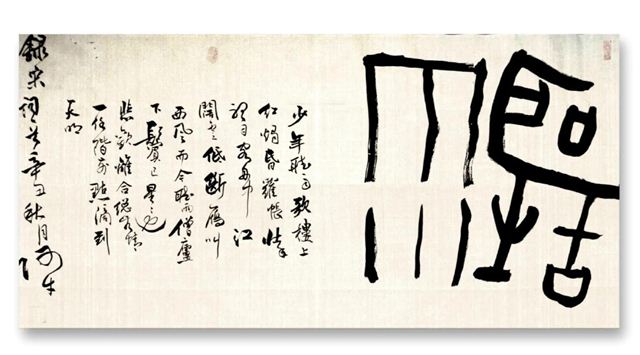 聽雨
少年聽雨歌樓上
红燭昏羅帳壯年
聽雨客舟中江
闊雲低斷雁叫
西風而今聽雨僧廬
下鬢已星星也
悲歡離合總無情
一任階前點滴到
天明
錄宋詞辛丑秋月阿牛